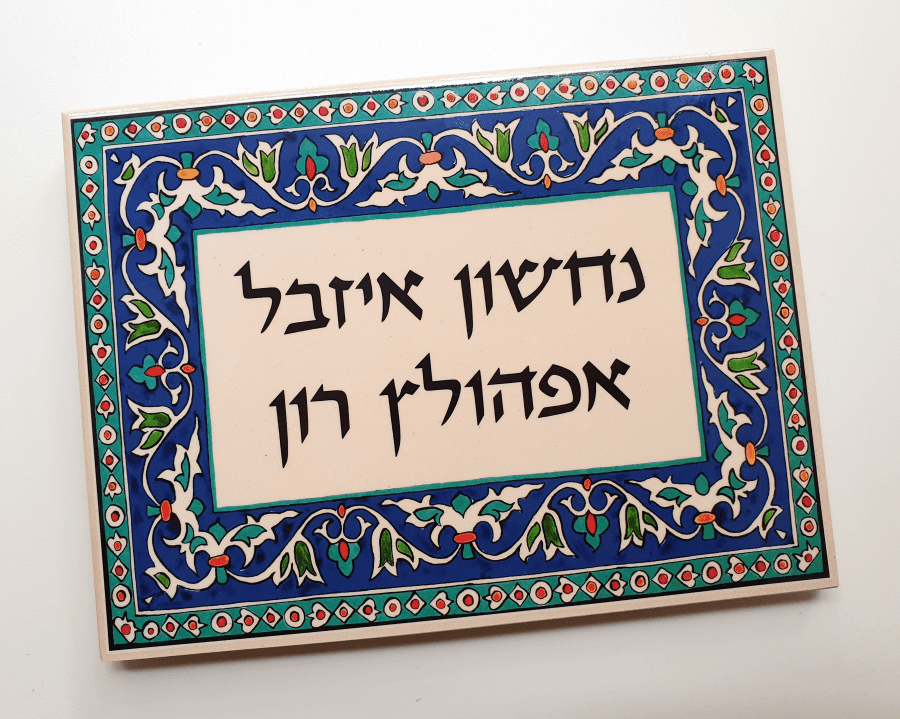 נחשון איזבל
אפהולץ רון